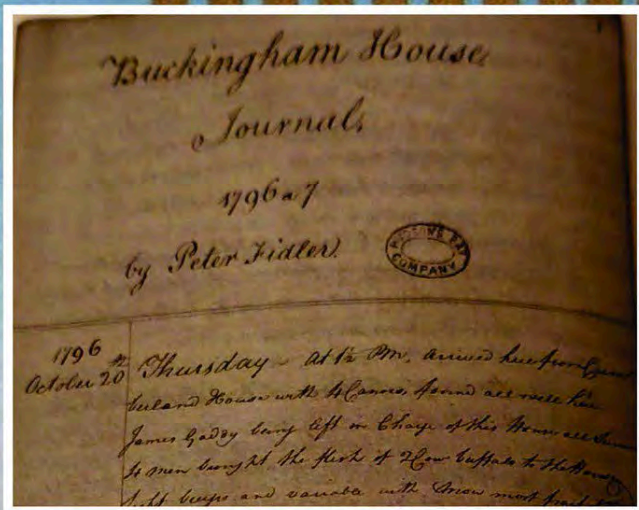 Buckingham House
Journal,
1796 a 7
by Peter Fidler.
HUDSONS BAY
COMPANY
1796
October 20th
Thursday - At ½ PM, arrived here from Cum
berland House with 4 Canoes found all well here
James Gaddy being left in Charge of this House all Summer
men brought the flesh of 2 Cow buffalo to the House
and variable with Snow most part